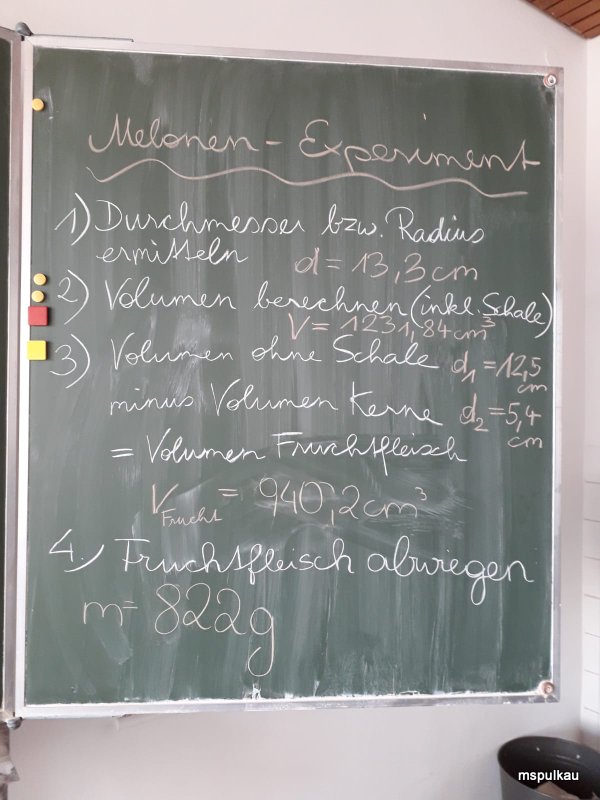 Melonen - Experiment
1) Durchmesser bzw. Radius
ermitteln d = 13,3 cm
2) Volumen berechnen (inkl. Schale)
V = 1231,84 cm³
3) Volumen ohne Schale d₁ = 12,5 cm
minus Volumen Kerne d₂ = 5,4 cm
= Volumen Fruchtfleisch
V Frucht = 940,2 cm³
4) Fruchtfleisch abwiegen
m = 822g
mspulkau